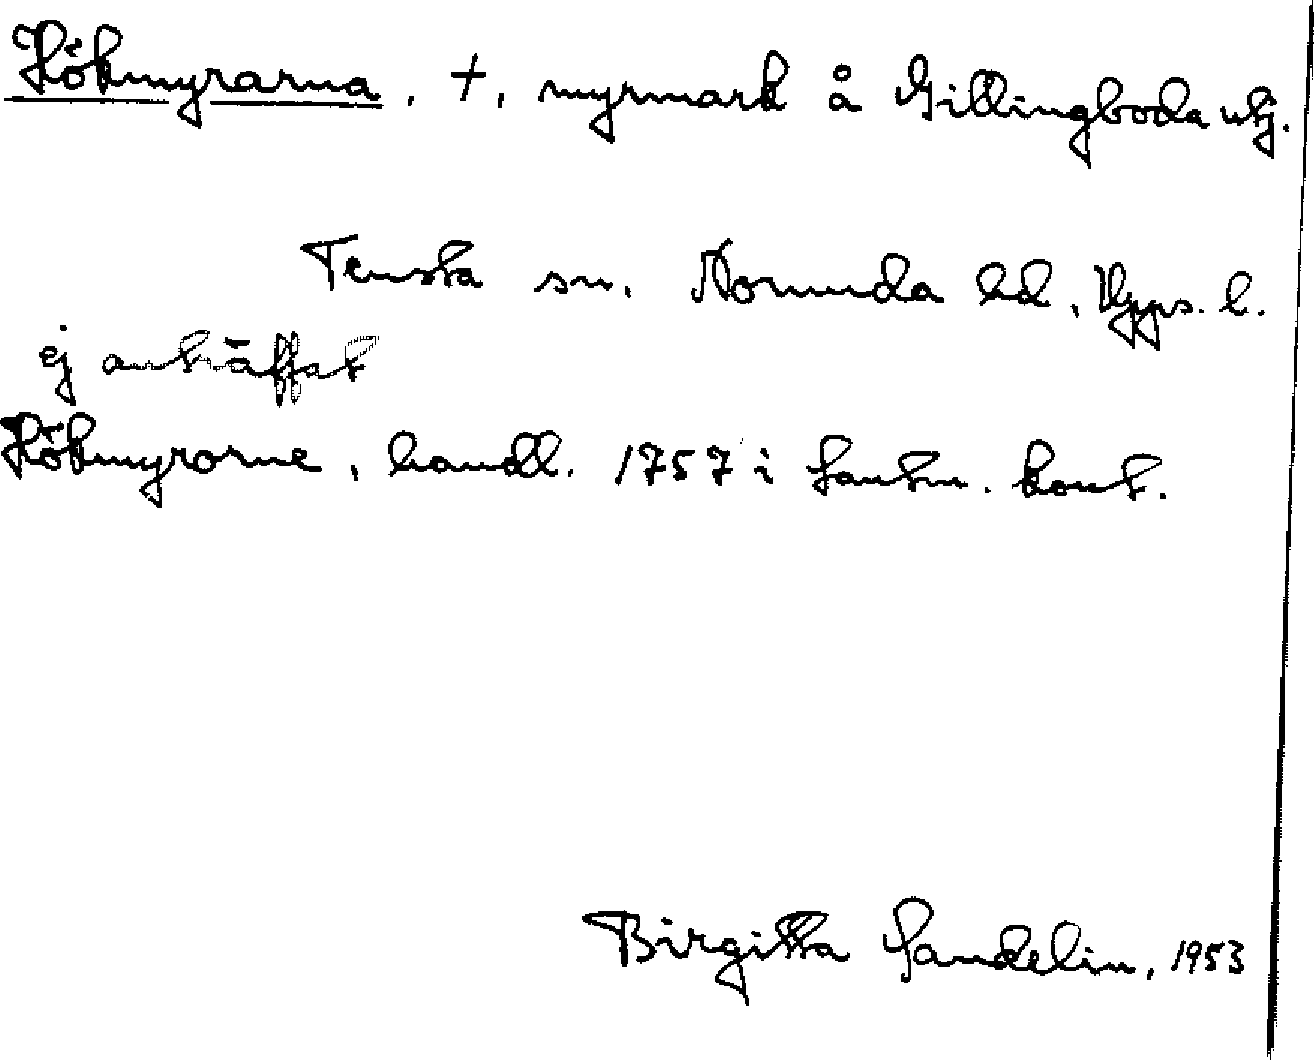 Hökmyrarna, +, myrmark å Gillingboda utj.
Tensta sn, Norunda hd, Upps. l.
ej anträffat
Hökmyrorne, handl. 1757 i Lantm. kont.
Birgitta Sandelin, 1953